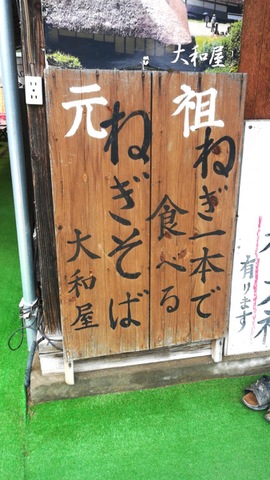 大和屋
元祖
ねぎ一本で
食べる
ねぎそば
大和屋
有ります